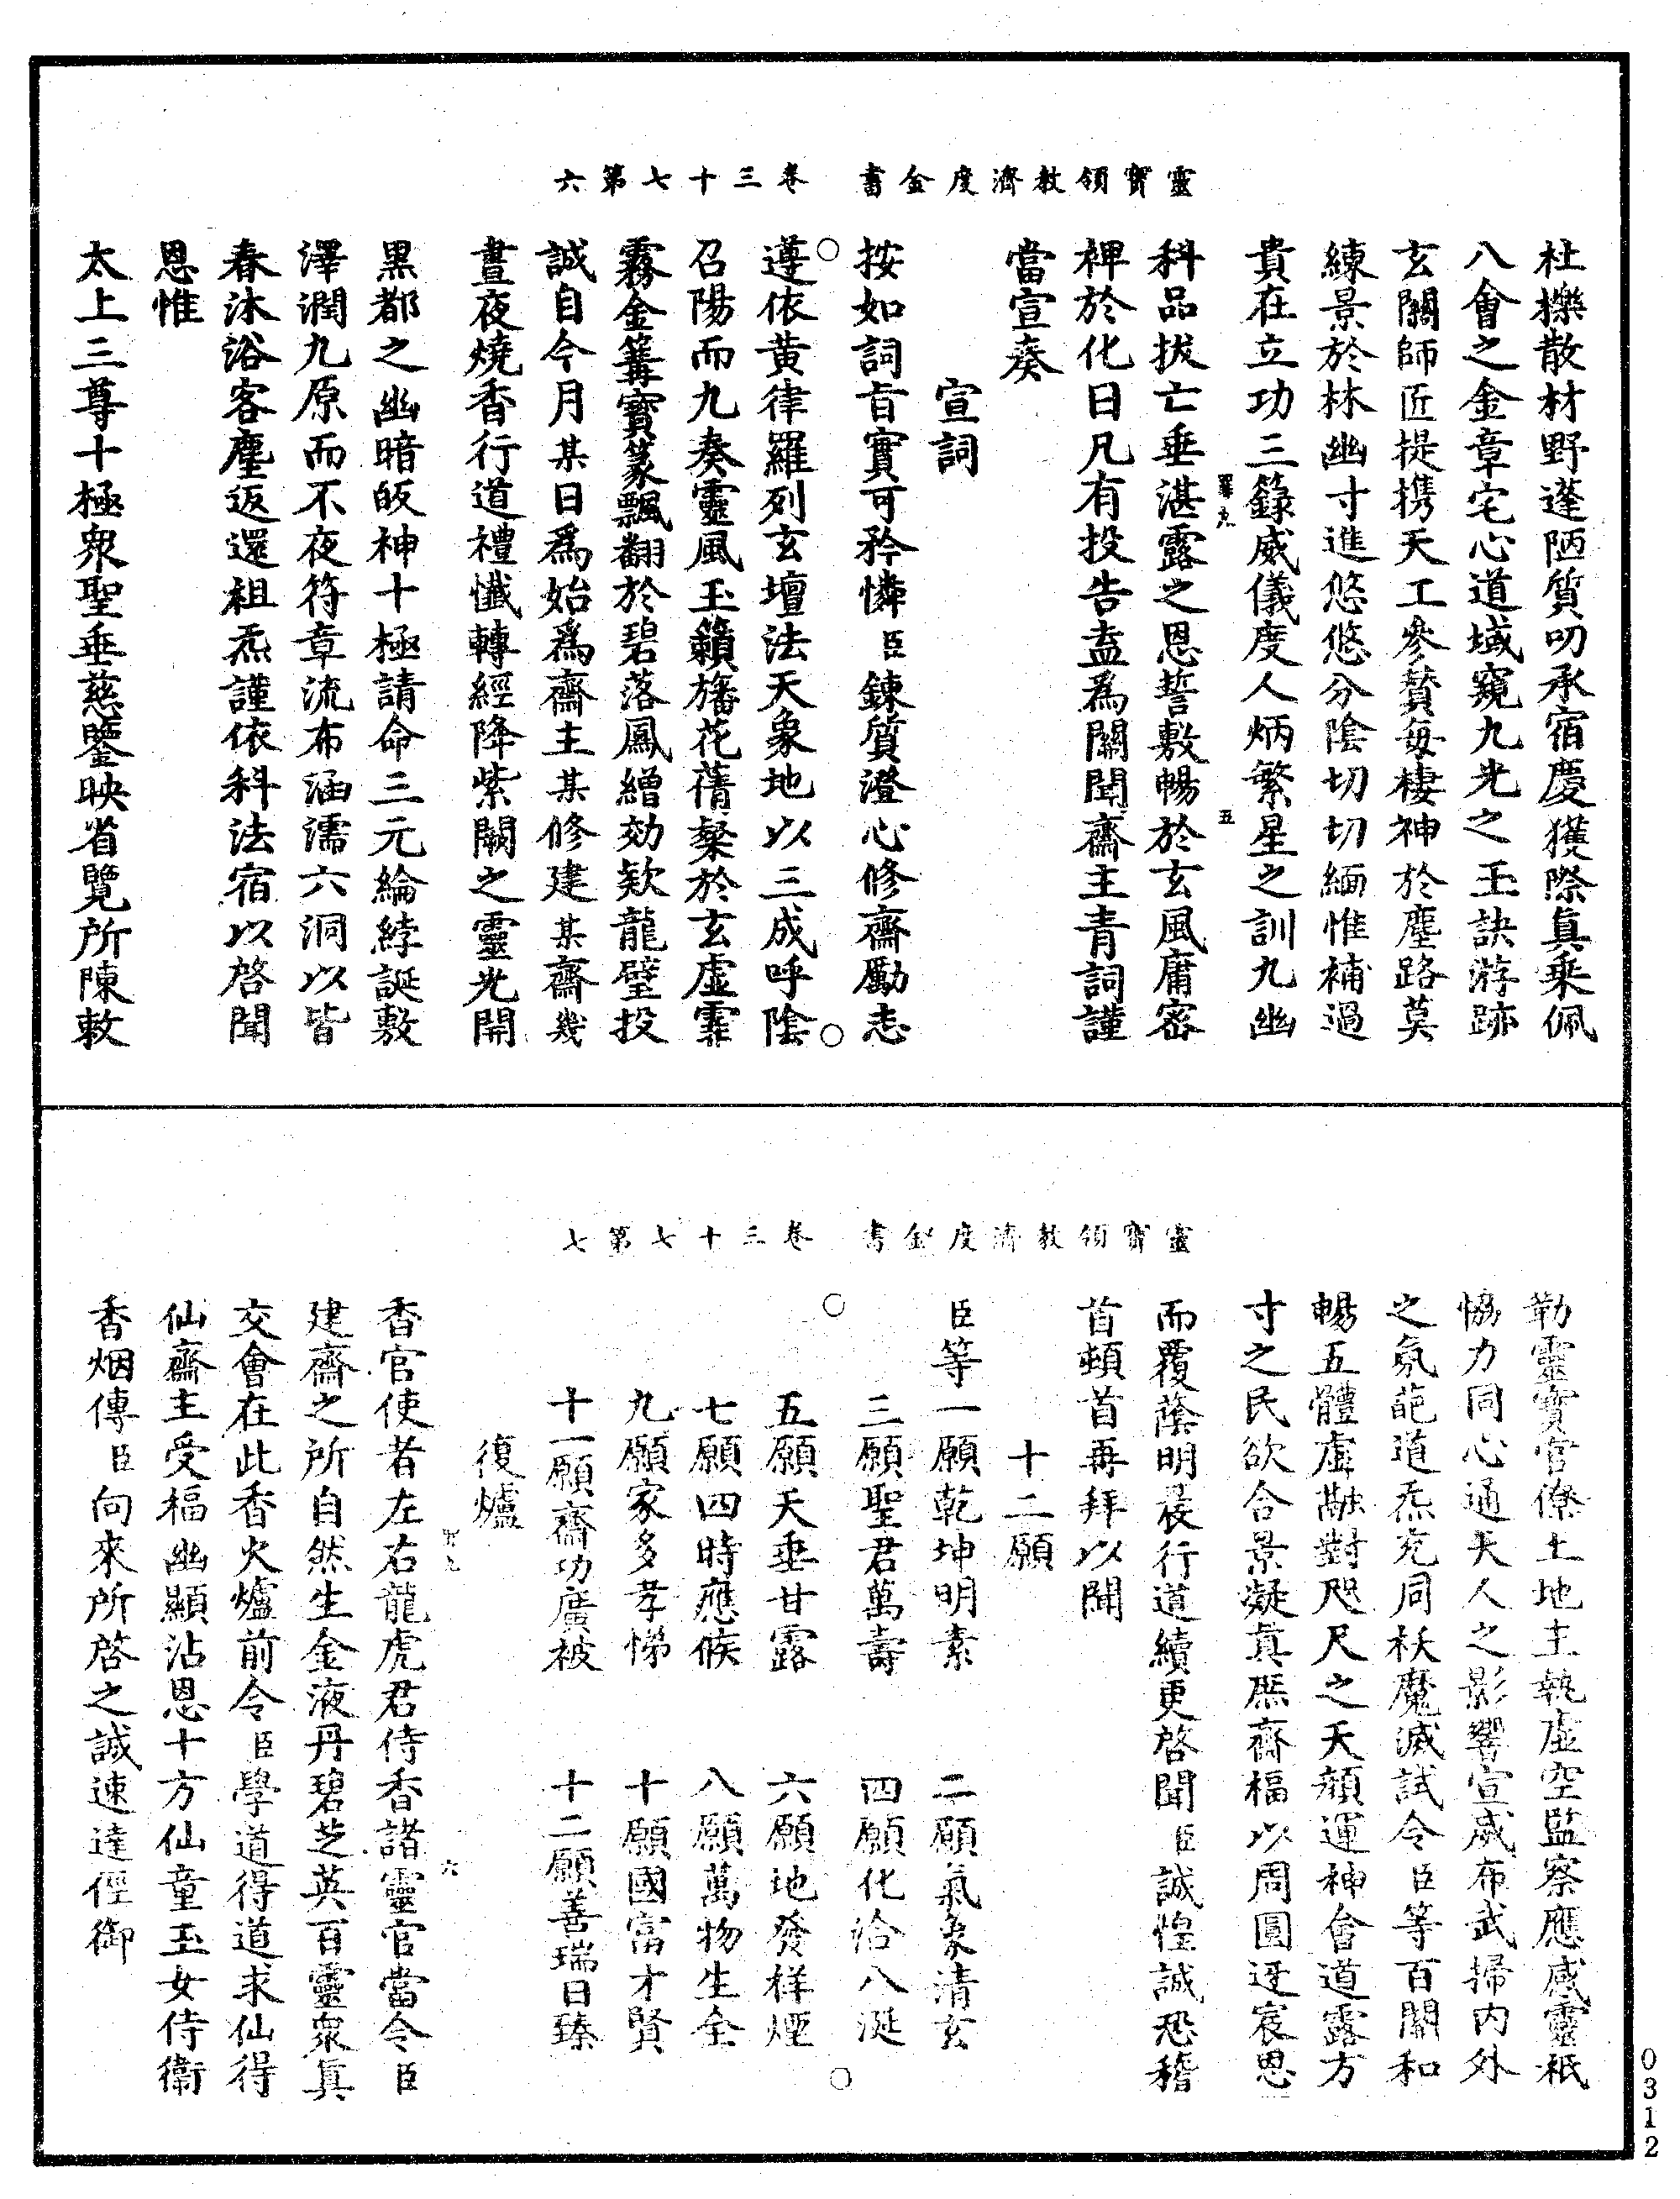 靈寶領教濟度金書　卷三十七第六
杜櫟散材野蓬陋質叨承宿慶獲際真乘佩
八會之金章宅心道域窺九光之玉訣游跡
玄關師匠提携天工參贊每棲神於塵路莫
練景於林幽寸進悠悠分陰切切緬惟補過
貴在立功三籙威儀度人炳繁星之訓九幽
科品拔亡垂湛露之恩誓敷暢於玄風庸密
裨於化日凡有投告盍為關聞齋主青詞謹
當宣奏
宣詞
按如詞旨實可矜憐臣鍊質澄心修齋勵志
遵依黃律羅列玄壇法天象地以三成呼陰
召陽而九奏靈風玉籟旛花蒨粲於玄虛霏
霧金篝寶篆飄翻於碧落鳳繒効欵龍璧投
誠自今月某日為始為齋主某修建某齋幾
晝夜燒香行道禮懺轉經降紫闕之靈光開
黑都之幽暗皈神十極請命三元綸綍誕敷
澤潤九原而不夜符章流布涵濡六洞以皆
春沐浴客塵返還祖炁謹依科法宿以啓聞
恩惟
太上三尊十極衆聖垂慈鑒映省覽所陳敕
靈寶領教濟度金書　卷三十七第七
勒靈寶官僚土地主執虛空監察應感靈祇
恊力同心通天人之影響宣威布武掃内外
之氛葩道炁充同袄魔滅試令臣等百關和
暢五體虛融對咫尺之天顏運神會道露方
寸之民欲合景凝真熈齋福以周圓迓宸恩
而覆蔭明晨行道續更啓聞臣誠惶誠恐稽
首頓首再拜以聞
十二願
臣等一願乾坤明素　二願氣象清玄
三願聖君萬壽　四願化洽八涎
五願天垂甘露　六願地發祥煙
七願四時應候　八願萬物生全
九願家多孝悌　十願國富才賢
十一願齋功廣被　十二願善瑞日臻
復爐
香官使者左右龍虎君侍香諸靈官當令臣
建齋之所自然生金液丹碧芝英百靈衆真
交會在此香火爐前令臣學道得道求仙得
仙齋主受福幽顯沾恩十方仙童玉女侍衛
香烟傳臣向來所啓之誠速達徑御
0312